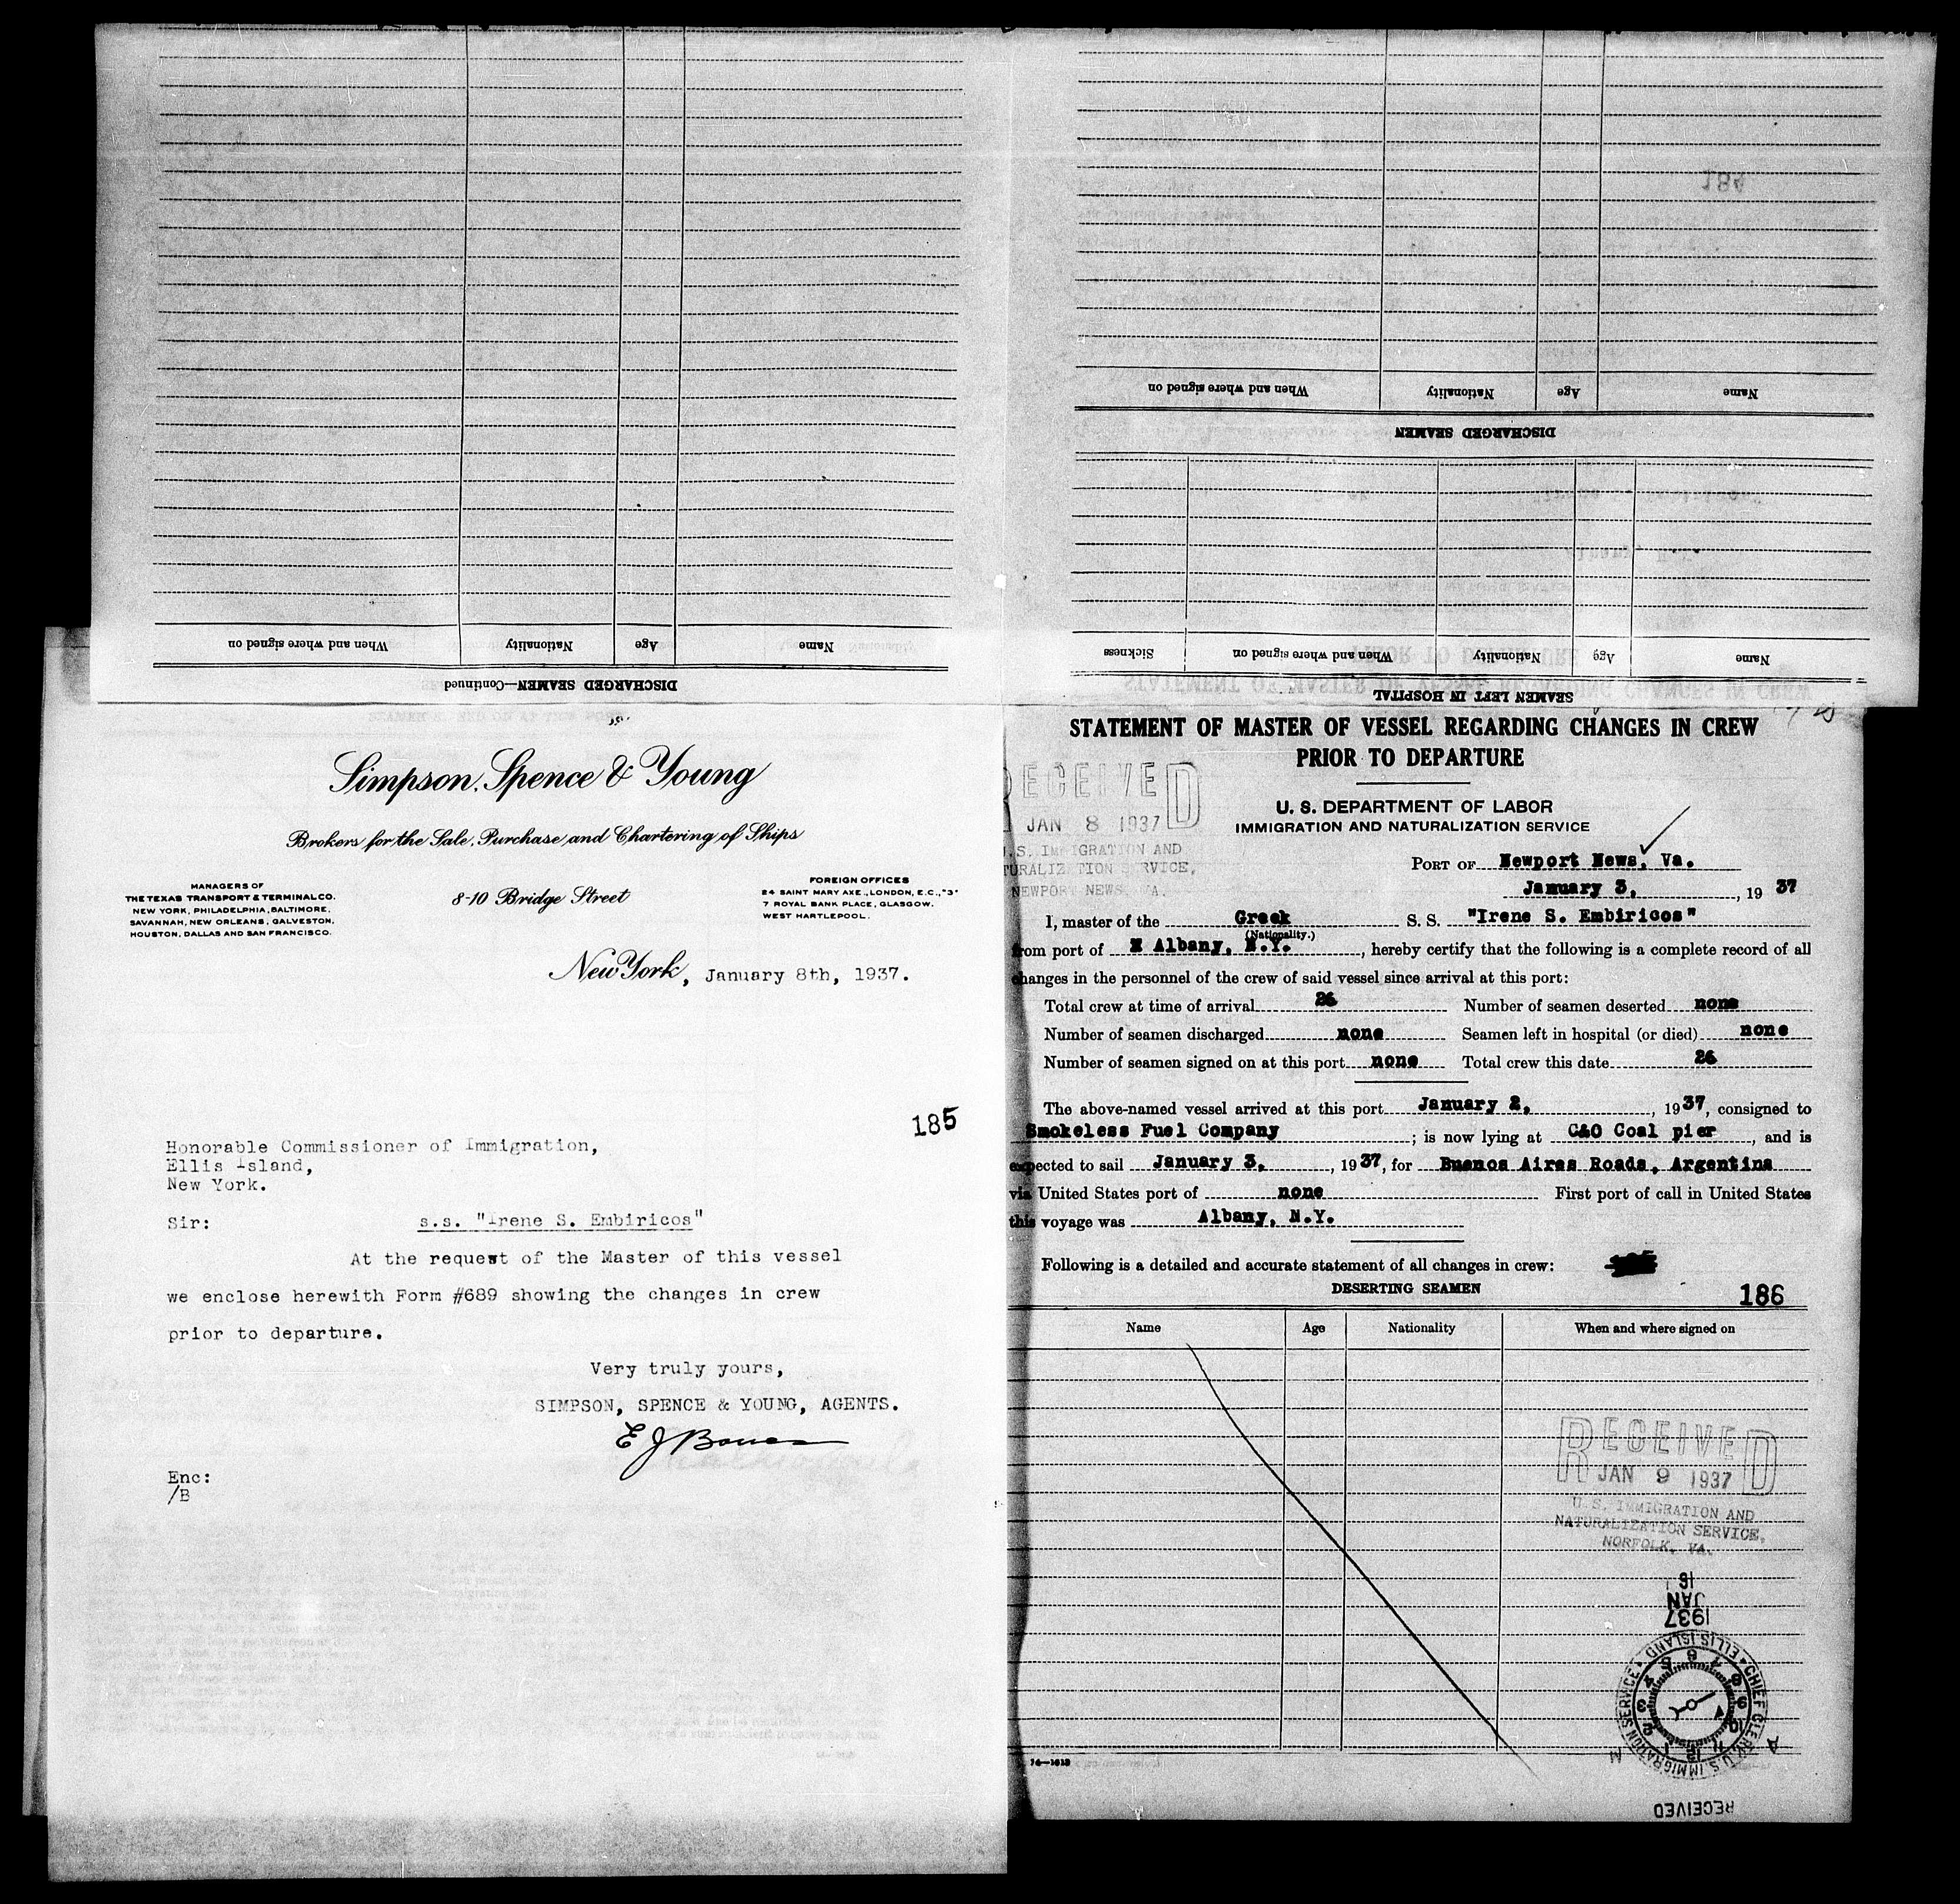 DISCHARGED SEAMEN—Continued
Name Age Nationality When and where signed on
SEAMEN LEFT IN HOSPITAL
Name Age Nationality When and where signed on Sickness
DISCHARGED SEAMEN
Name Age Nationality When and where signed on
184
Simpson, Spence & Young
Brokers for the Sale, Purchase and Chartering of Ships
MANAGERS OF
THE TEXAS TRANSPORT & TERMINAL CO.
NEW YORK, PHILADELPHIA, BALTIMORE,
SAVANNAH, NEW ORLEANS, GALVESTON,
HOUSTON, DALLAS AND SAN FRANCISCO.
8-10 Bridge Street
FOREIGN OFFICES
24 SAINT MARY AXE., LONDON, E.C., "3"
7 ROYAL BANK PLACE, GLASGOW.
WEST HARTLEPOOL.
New York, January 8th, 1937.
185
Honorable Commissioner of Immigration,
Ellis Island,
New York.
Sir: s.s. "Irene S. Embiricos"
At the request of the Master of this vessel
we enclose herewith Form #689 showing the changes in crew
prior to departure.
Very truly yours,
SIMPSON, SPENCE & YOUNG, AGENTS.
E J
Enc:
/B
STATEMENT OF MASTER OF VESSEL REGARDING CHANGES IN CREW
PRIOR TO DEPARTURE
RECEIVED
JAN 8 1937
U.S. IMMIGRATION AND
NATURALIZATION SERVICE,
NEWPORT NEWS, VA.
U. S. DEPARTMENT OF LABOR
IMMIGRATION AND NATURALIZATION SERVICE
PORT OF Newport News, Va.
January 3, , 19 37
I, master of the Greek S. S. "Irene S. Embiricos"
(Nationality.)
from port of Albany, N.Y. , hereby certify that the following is a complete record of all
changes in the personnel of the crew of said vessel since arrival at this port:
Total crew at time of arrival 26 Number of seamen deserted none
Number of seamen discharged none Seamen left in hospital (or died) none
Number of seamen signed on at this port none Total crew this date 26
The above-named vessel arrived at this port January 2, , 1937, consigned to
Smokeless Fuel Company ; is now lying at C&O Coal pier , and is
expected to sail January 3, , 1937, for Buenos Aires Roads, Argentina
via United States port of none First port of call in United States
this voyage was Albany, N.Y.
Following is a detailed and accurate statement of all changes in crew:
DESERTING SEAMEN
186
Name Age Nationality When and where signed on
RECEIVED
JAN 9 1937
U.S. IMMIGRATION AND
NATURALIZATION SERVICE,
NORFOLK, VA.
RECEIVED
CHIEF CLERK, U.S. IMMIGRATION SERVICE • ELLIS ISLAND •
1937
JAN
16
14—1613